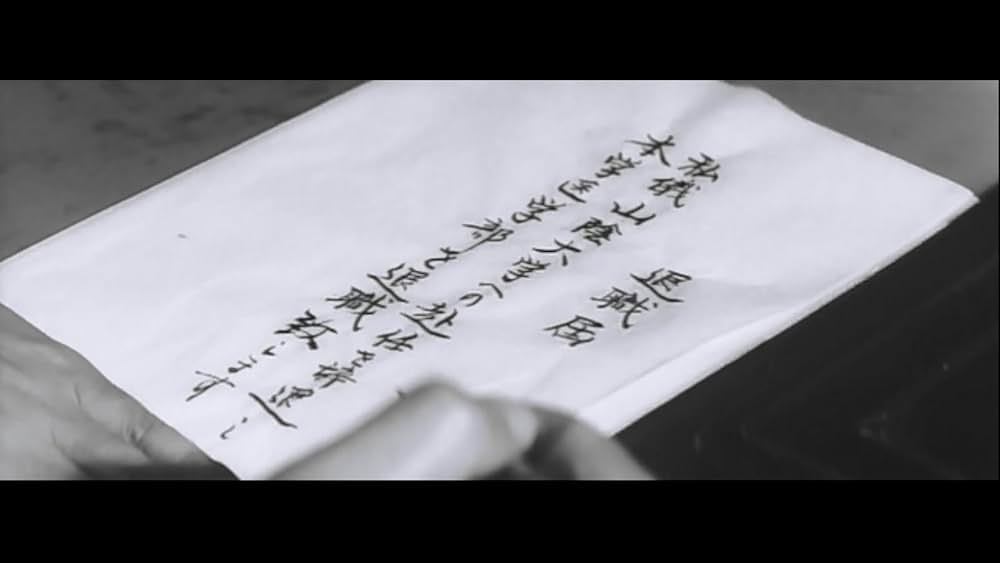 退職届
私儀山陰大学への赴任を辞退し
本学医学部を退職致します